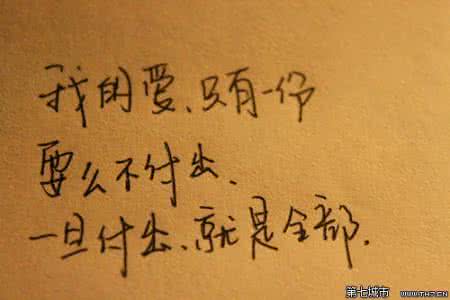 我的爱、只有一份
要么不付出、
一旦付出、就是全部.
第七城市 WWW.TH7.CN